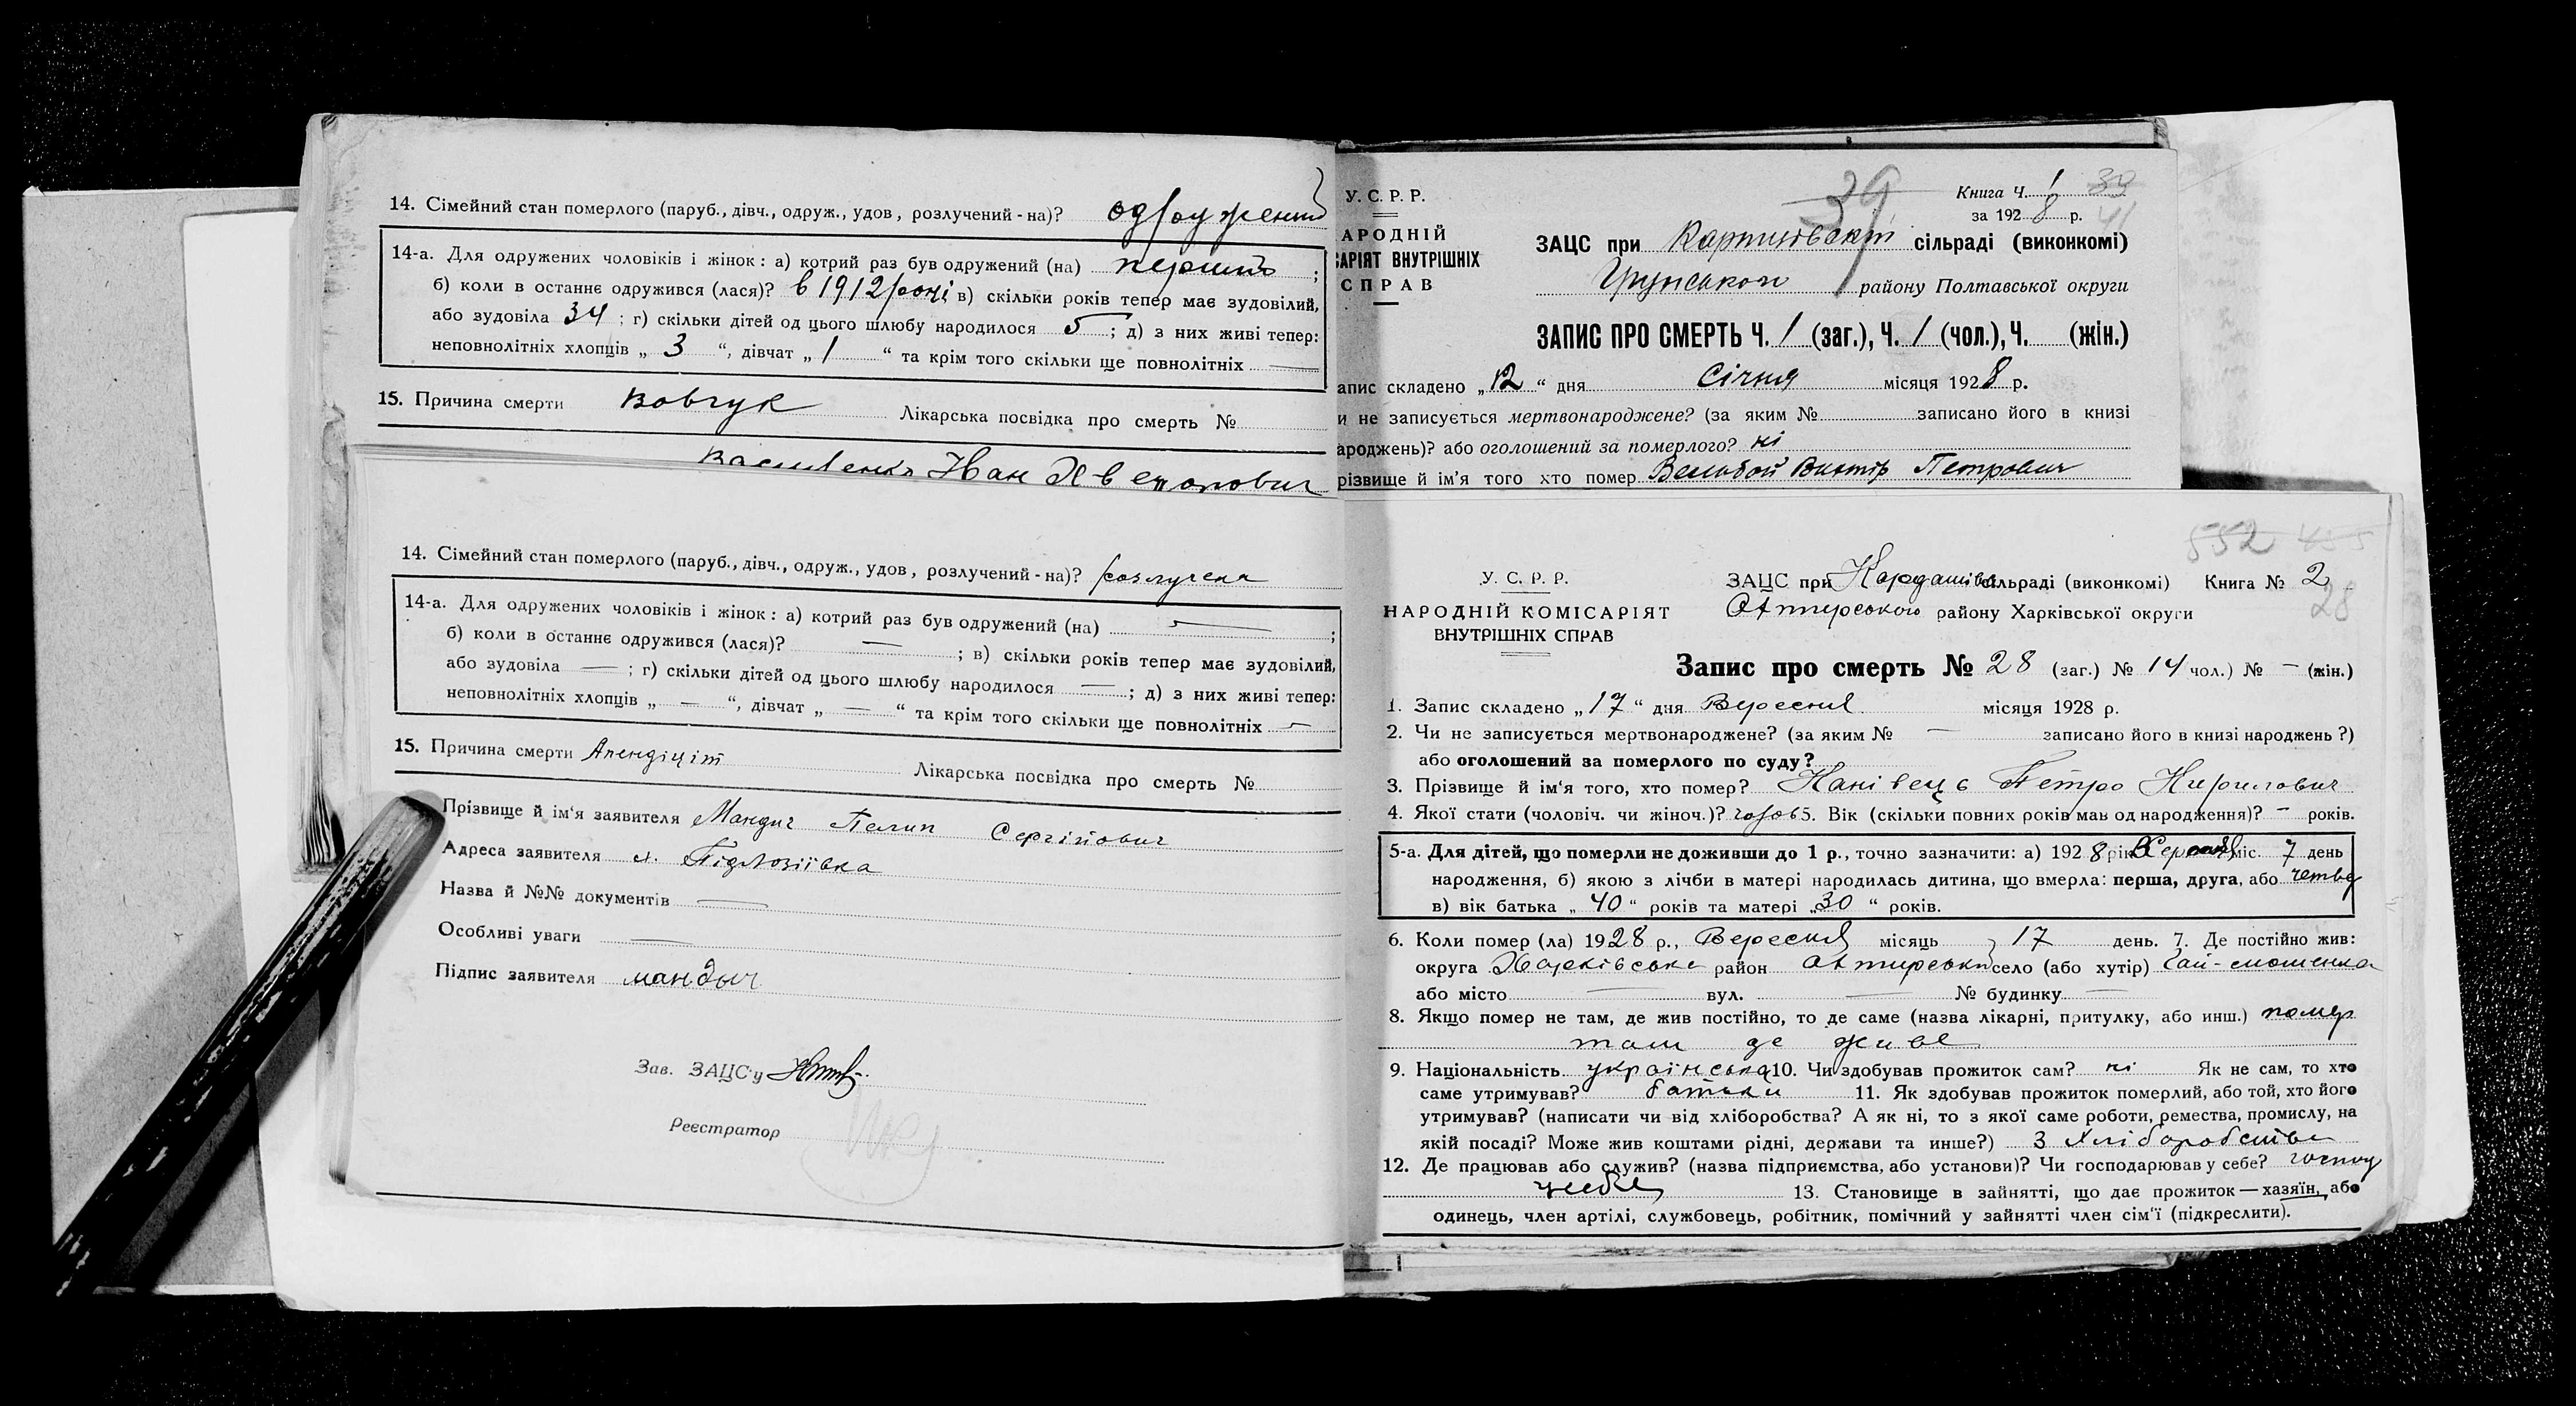 14. Сімейний стан померлого (паруб., дівч., одруж., удов, розлучений - на)? одружений
14-а. Для одружених чоловіків і жінок: а) котрий раз був одружений (на) перший ;
б) коли в останнє одружився (лася)? в 1912 році в) скільки років тепер має зудовілий,
або зудовіла 34 ; г) скільки дітей од цього шлюбу народилося 5 ; д) з них живі тепер:
неповнолітніх хлопців „ 3 “, дівчат „ 1 “ та крім того скільки ще повнолітніх —
15. Причина смерти Вовчук Лікарська посвідка про смерть №
Василенко Іван
14. Сімейний стан померлого (паруб., дівч., одруж., удов, розлучений - на)? розлучена
14-а. Для одружених чоловіків і жінок: а) котрий раз був одружений (на) — ;
б) коли в останнє одружився (лася)? — ; в) скільки років тепер має зудовілий,
або зудовіла — ; г) скільки дітей од цього шлюбу народилося — ; д) з них живі тепер:
неповнолітніх хлопців „ — “, дівчат „ — “ та крім того скільки ще повнолітніх —
15. Причина смерти Апендіціт Лікарська посвідка про смерть №
Прізвище й ім‘я заявителя Мандич Пилип Сергійович
Адреса заявителя х. Підлозіївка
Назва й №№ документів —
Особливі уваги —
Підпис заявителя мандыч
Зав. ЗАЦС‘у
Реєстратор
У. С. Р. Р.
АРОДНІЙ
САРІЯТ ВНУТРІШНІХ
СПРАВ
39
Книга Ч. 1 39
за 192 8 р. 41
ЗАЦС при сільраді (виконкомі)
Грунського району Полтавської округи
ЗАПИС ПРО СМЕРТЬ Ч. 1 (заг.), Ч. 1 (чол.), Ч. (жін.)
апис складено „ 12 “ дня Січня місяця 192 8 р.
и не записується мертвонароджене? (за яким № записано його в книзі
ароджень)? або оголошений за померлого? ні
різвище й ім‘я того хто помер Віктір Петрович
552 455
У. С. Р. Р.
НАРОДНІЙ КОМІСАРІЯТ
ВНУТРІШНІХ СПРАВ
ЗАЦС при Кардашівс сільраді (виконкомі) Книга № 2
Охтирського району Харківської округи 28
Запис про смерть № 28 (заг.) № 14 чол.) № — (жін.)
1. Запис складено „ 17 “ дня Вересня місяця 1928 р.
2. Чи не записується мертвонароджене? (за яким № — записано його в книзі народжень ?)
або оголошений за померлого по суду?
3. Прізвище й ім‘я того, хто помер? Канівець Петро Кирилович
4. Якої стати (чоловіч. чи жіноч.)? чолов 5. Вік (скільки повних років мав од народження)? — років.
5-а. Для дітей, що померли не доживши до 1 р., точно зазначити: а) 192 8 рік Серпня міс. 7 день
народження, б) якою з лічби в матері народилась дитина, що вмерла: перша, друга, або четве
в) вік батька „ 40 “ років та матері „ 30 “ років.
6. Коли помер (ла) 1928 р., Вересня місяць, 17 день. 7. Де постійно жив:
округа Харківська район Охтирський село (або хутір) Гай-мошенка
або місто — вул. — № будинку —
8. Якщо помер не там, де жив постійно, то де саме (назва лікарні, притулку, або инш.) помер
там де живе
9. Національність українська 10. Чи здобував прожиток сам? ні Як не сам, то хто
саме утримував? батьки 11. Як здобував прожиток померлий, або той, хто його
утримував? (написати чи від хліборобства? А як ні, то з якої саме роботи, ремества, промислу, на
якій посаді? Може жив коштами рідні, держави та инше?) З хліборобства
12. Де працював або служив? (назва підприємства, або установи)? Чи господарював у себе? господ
у себе 13. Становище в зайнятті, що дає прожиток — хазяїн, або
одинець, член артілі, службовець, робітник, помічний у зайнятті член сім‘ї (підкреслити).